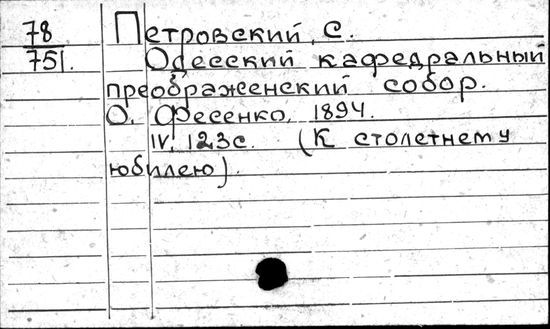 78 Петровский, С.
751. Одесский кафедральный
преображенский собор.
О. Фесенко, 1894.
IV, 123с. (К столетнему
юбилею).